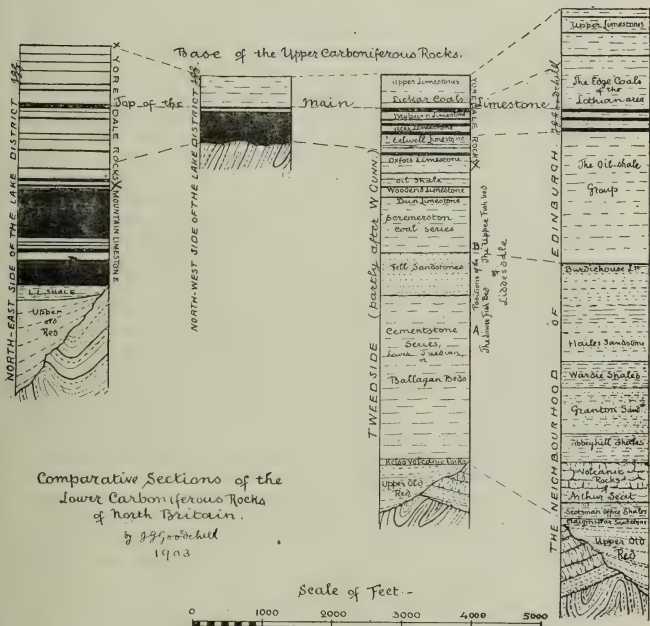 Base of the Upper Carboniferous Rocks.
Top of the Main Limestone
NORTH-EAST SIDE OF THE LAKE DISTRICT
X YOREDALE ROCKS X MOUNTAIN LIMESTONE
L.L. SHALE
Upper
old
Red
NORTH-WEST SIDE OF THE LAKE DISTRICT
TWEEDSIDE (partly after W GUNN.)
YOREDALE ROCKS X
Upper Limestones
Lickar Coals
Dryburn Limestone
Eelwell Limestone
Oxford Limestone
Oil Shale
Woodend Limestone
Dun Limestone
Scremerston
coal series
Fell Sandstones
Cementstone
Series,
or
Ballagan Beds
Kelso Volcanic Rocks
Upper Old
Red
A
B
Positions of the
The Lower Fish Bed
The Upper Fish bed
of
Liddesdale
THE NEIGHBOURHOOD OF EDINBURGH
Upper Limestones
The Edge Coals
of the
Lothian area
The Oil-shale
Group
Burdiehouse Lm
Hailes Sandstone
Wardie Shales
Granton Sand
Abbeyhill Shales
Volcanic
Rocks
of
Arthur Seat
Scotsman Office Shales
Craigmillar Sandstone
Upper Old
Red
Comparative Sections of the
Lower Carboniferous Rocks
of North Britain.
by J.G. Goodchild
1903
Scale of Feet.-
0 1000 2000 3000 4000 5000